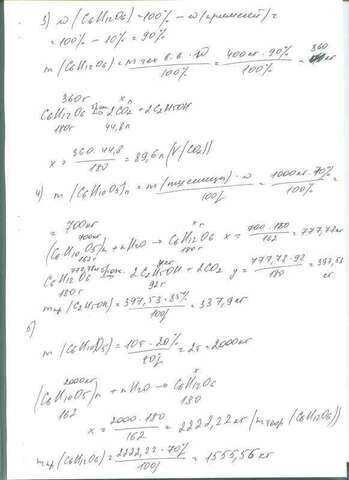 3) w (C6H12O6) = 100% - w (примесей) =
= 100% - 10% = 90%
m (C6H12O6) = m тех в.в. · w / 100% = 400кг · 90% / 100% = 360 кг
360г x л
C6H12O6 → 2CO2 + 2C2H5OH
180г 44,8л
x = 360 · 44,8 / 180 = 89,6л (V(CO2))
4) m (C6H10O5)n = m (пшеницы) · w / 100% = 1000кг · 70% / 100% =
= 700кг
700кг x г
(C6H10O5)n + nH2O → C6H12O6 x = 700 · 180 / 162 = 777,78кг
162г 180г
777,78кг yкг
C6H12O6 → 2C2H5OH + 2CO2 y = 777,78 · 92 / 180 = 397,53 кг
180г 92г
mпр (C2H5OH) = 397,53 · 85% / 100% = 337,9 кг
5)
m (C6H10O5) = 10т · 20% / = 2т = 2000кг
2000кг x
(C6H10O5)n + nH2O → C6H12O6
162 180
x = 2000 · 180 / 162 = 2222,22 кг (mтеор (C6H12O6))
mпр (C6H12O6) = 2222,22 · 70% / 100% = 1555,56 кг